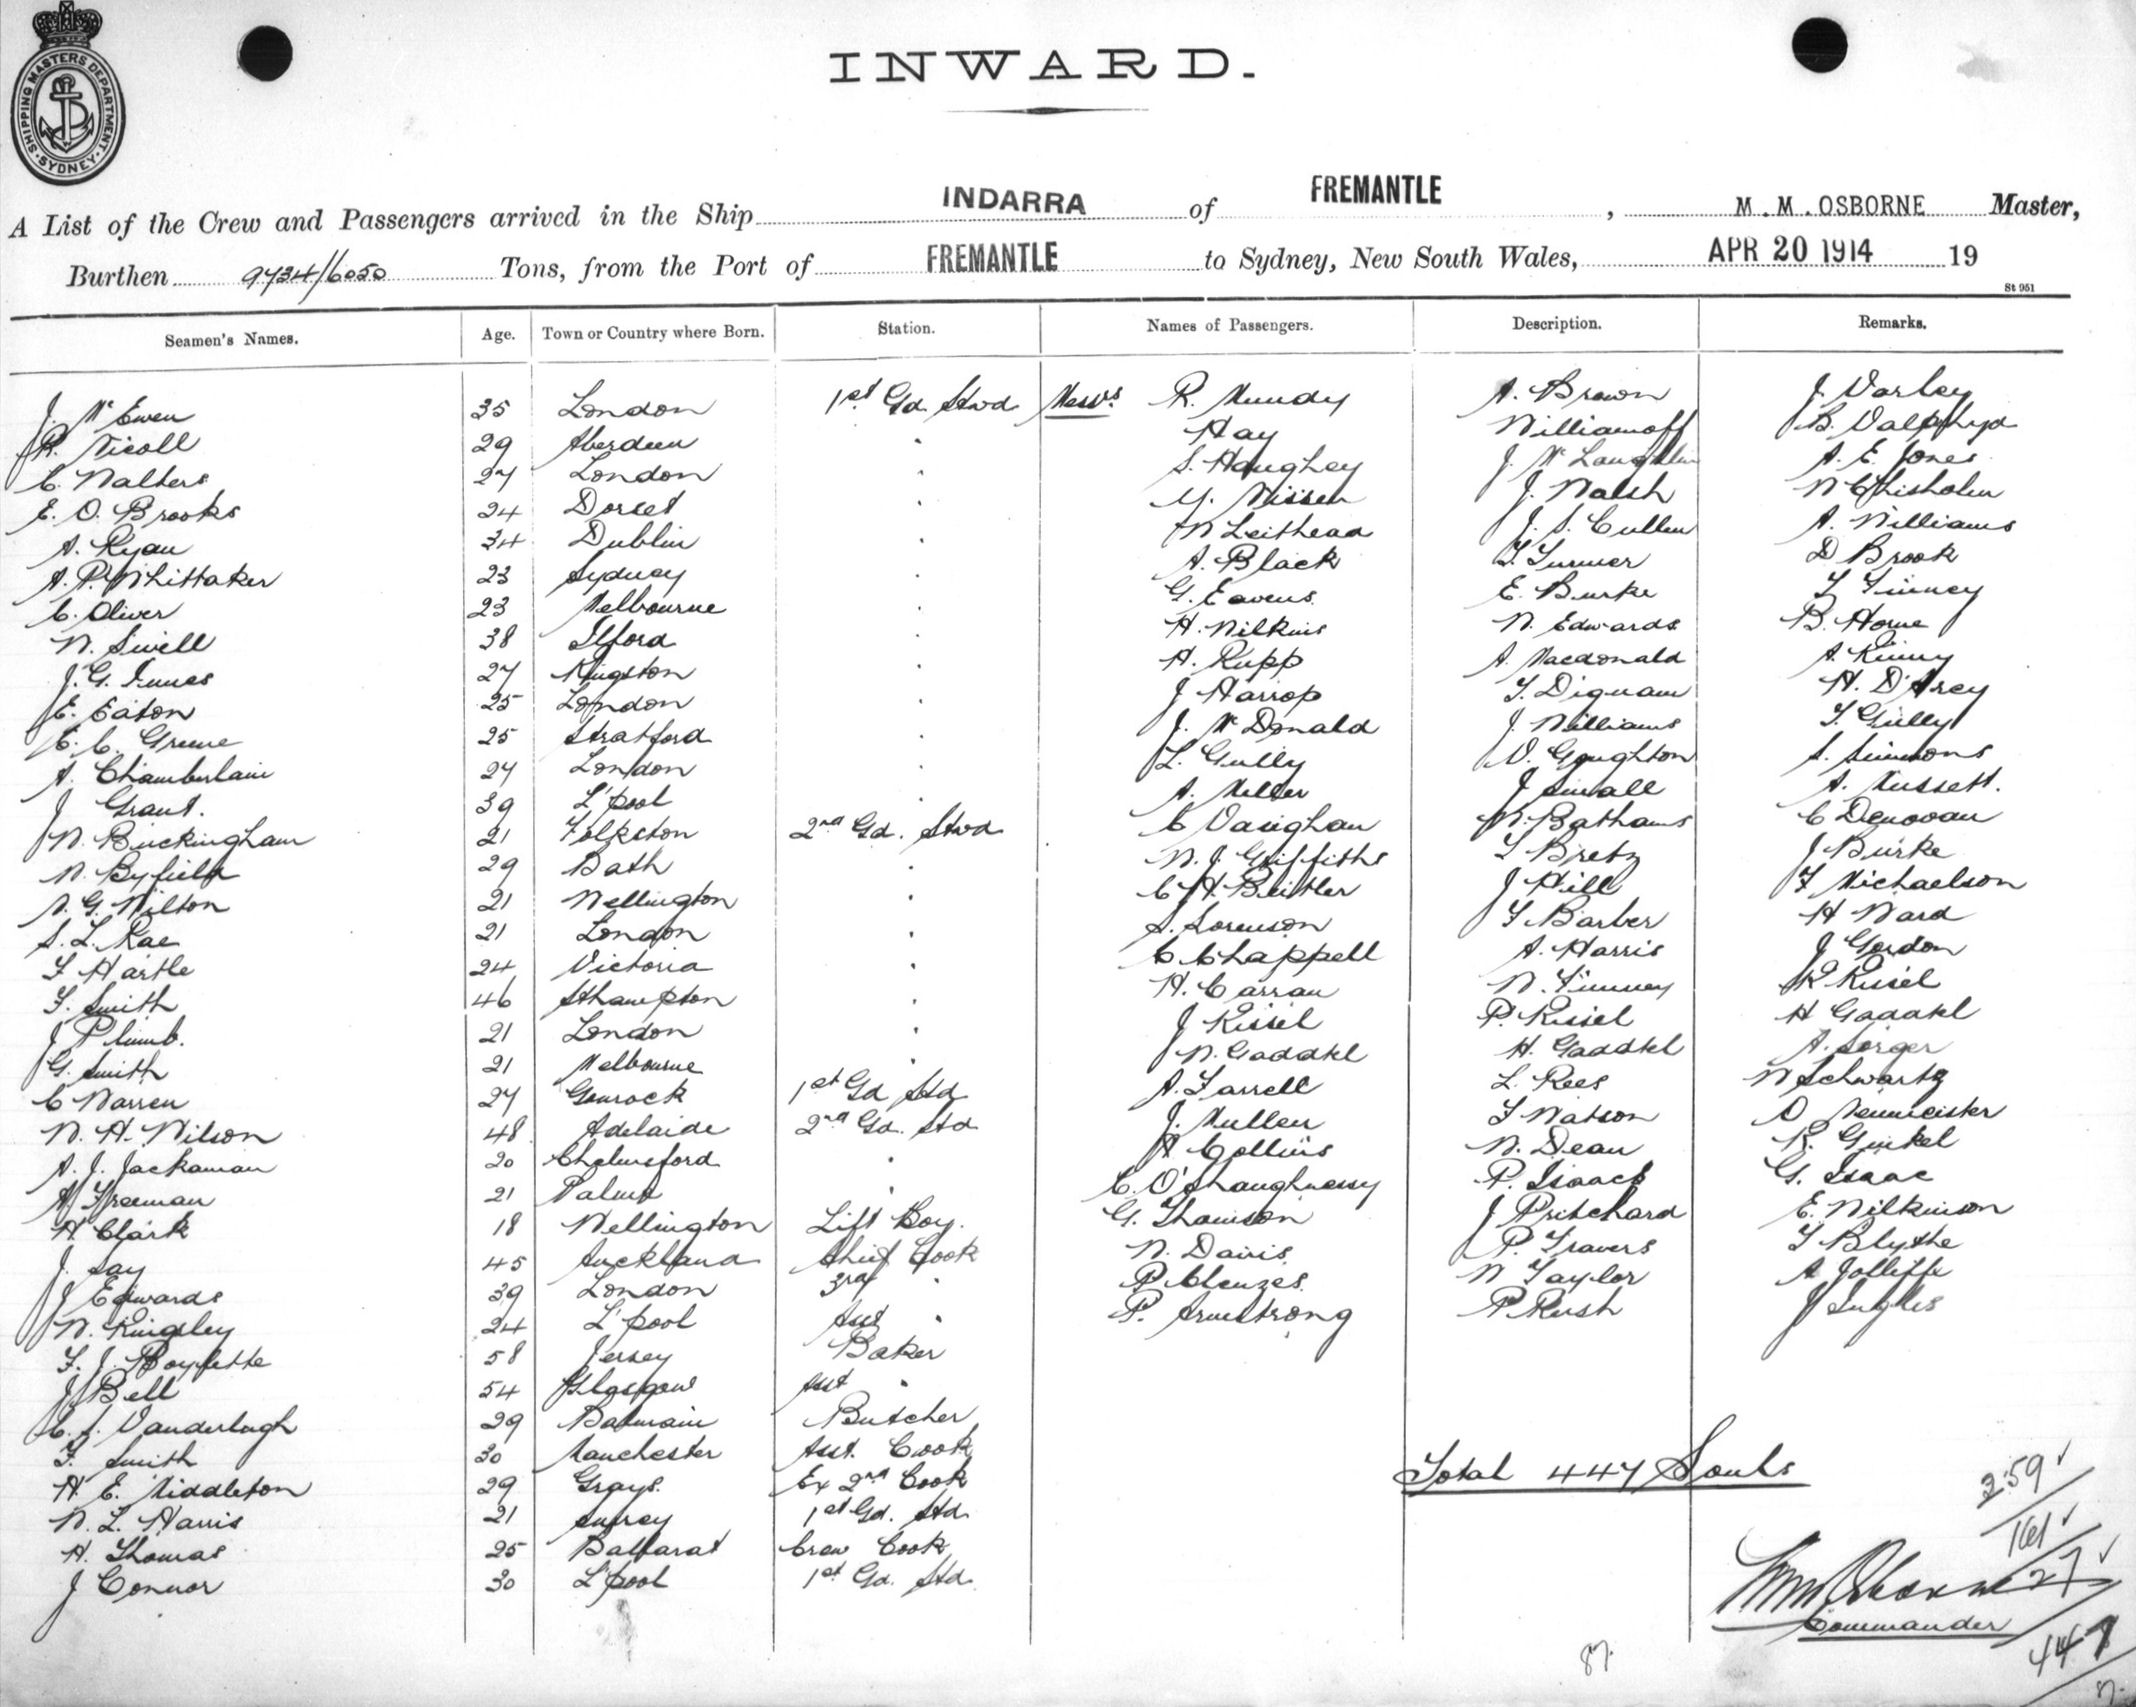 SHIPPING MASTERS DEPARTMENT. SYDNEY
INWARD.
A List of the Crew and Passengers arrived in the Ship INDARRA of FREMANTLE, M.M.OSBORNE Master,
Burthen 9734/6050 Tons, from the Port of FREMANTLE to Sydney, New South Wales, APR 20 1914 19
St 951
Seamen's Names. Age. Town or Country where Born. Station. Names of Passengers. Description. Remarks.
J. Mc Ewen 35 London 1st Gd. Stwd Messrs R. Mundy A. Brown J. Varley
R. Nicoll 29 Aberdeen " Hay Williamoff B.
C. Walters 27 London " S. Haughey J. Mc Laughlin A. E. Jones
E. O. Brooks 24 Dorset " Y. Nissen J. Walsh W Chisholm
A. Ryan 34 Dublin " W Leithead J. S. Cullen A. Williams
A. P. Whittaker 23 Sydney " A. Black T. Turner D Brook
C. Oliver 23 Melbourne " G. Eavens E. Burke T Finney
W. Sivell 38 Ilford " H. Wilkins W. Edwards B. Horne
J. G. Innes 27 Kingston " H. Rupp A. Macdonald A. Kinny
E. Eaton 25 London " J Harrop T. Dignam H. D'Arcy
C. C. Greene 25 Stratford " J. Mc Donald J. Williams T. Gully
A. Chamberlain 27 London " L. Gully V. Goughton S. Simmons
J Grant. 39 L'pool " A. Miller J Small A. Mussett.
W. Buckingham 21 Folkston 2nd Gd. Stwd C Vaughan W. Bathams C Denovan
W. Byfield 29 Bath " W. J. Griffiths T Bretz J Burke
A. G. Wilton 21 Wellington " C. H. Beitler J Hill F Michaelson
S. L. Rae 21 London " S. Sorenson T Barber H Ward
F Hartle 24 Victoria " C Chappell A. Harris J Gordon
F. Smith 46 Sthampton " H. Carran W. Finney R Kissel
J Plumb. 21 London " J Kissel P. Kissel H Gaddkl
G. Smith 21 Melbourne " W. Gaddkl H. Gaddkl A. Sorger
C Warren 27 Gourock 1st Gd Std A. Farrell L. Rees W Schwartz
W. H. Wilson 48 Adelaide 2nd Gd. Std J. Mullen T Watson O Neumeister
A. J. Jackaman 20 Chelmsford " A Collins W. Dean R. Ginkel
A Freeman 21 " C. O'Shaughnessy P. Isaacs G. Isaac
H Clark 18 Wellington Lift Boy. G. Thomson J Pritchard E. Wilkinson
J. Say 45 Auckland Chief Cook W. Davis P. Travers T Blythe
J Edwards 39 London 3rd " P. W Taylor A Jolliffe
W. Kingsley 24 L'pool Asst " P. Armstrong P Rush J Ingles
F. J. 58 Jersey Baker
J Bell 54 Glasgow Asst "
C. S. 29 Balmain Butcher
F. Smith 30 Manchester Asst. Cook
H E. Middleton 29 Grays. Ex 2nd Cook
W. L. Harris 21 Surrey 1st Gd. Std
H. Thomas 25 Ballarat Crew Cook
J Connor 30 L'pool 1st Gd. Std
Total 447 Souls
259
161
27
447
Commander